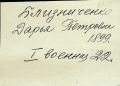 Близниченко
Дарья Петровна
1899
I военный 22